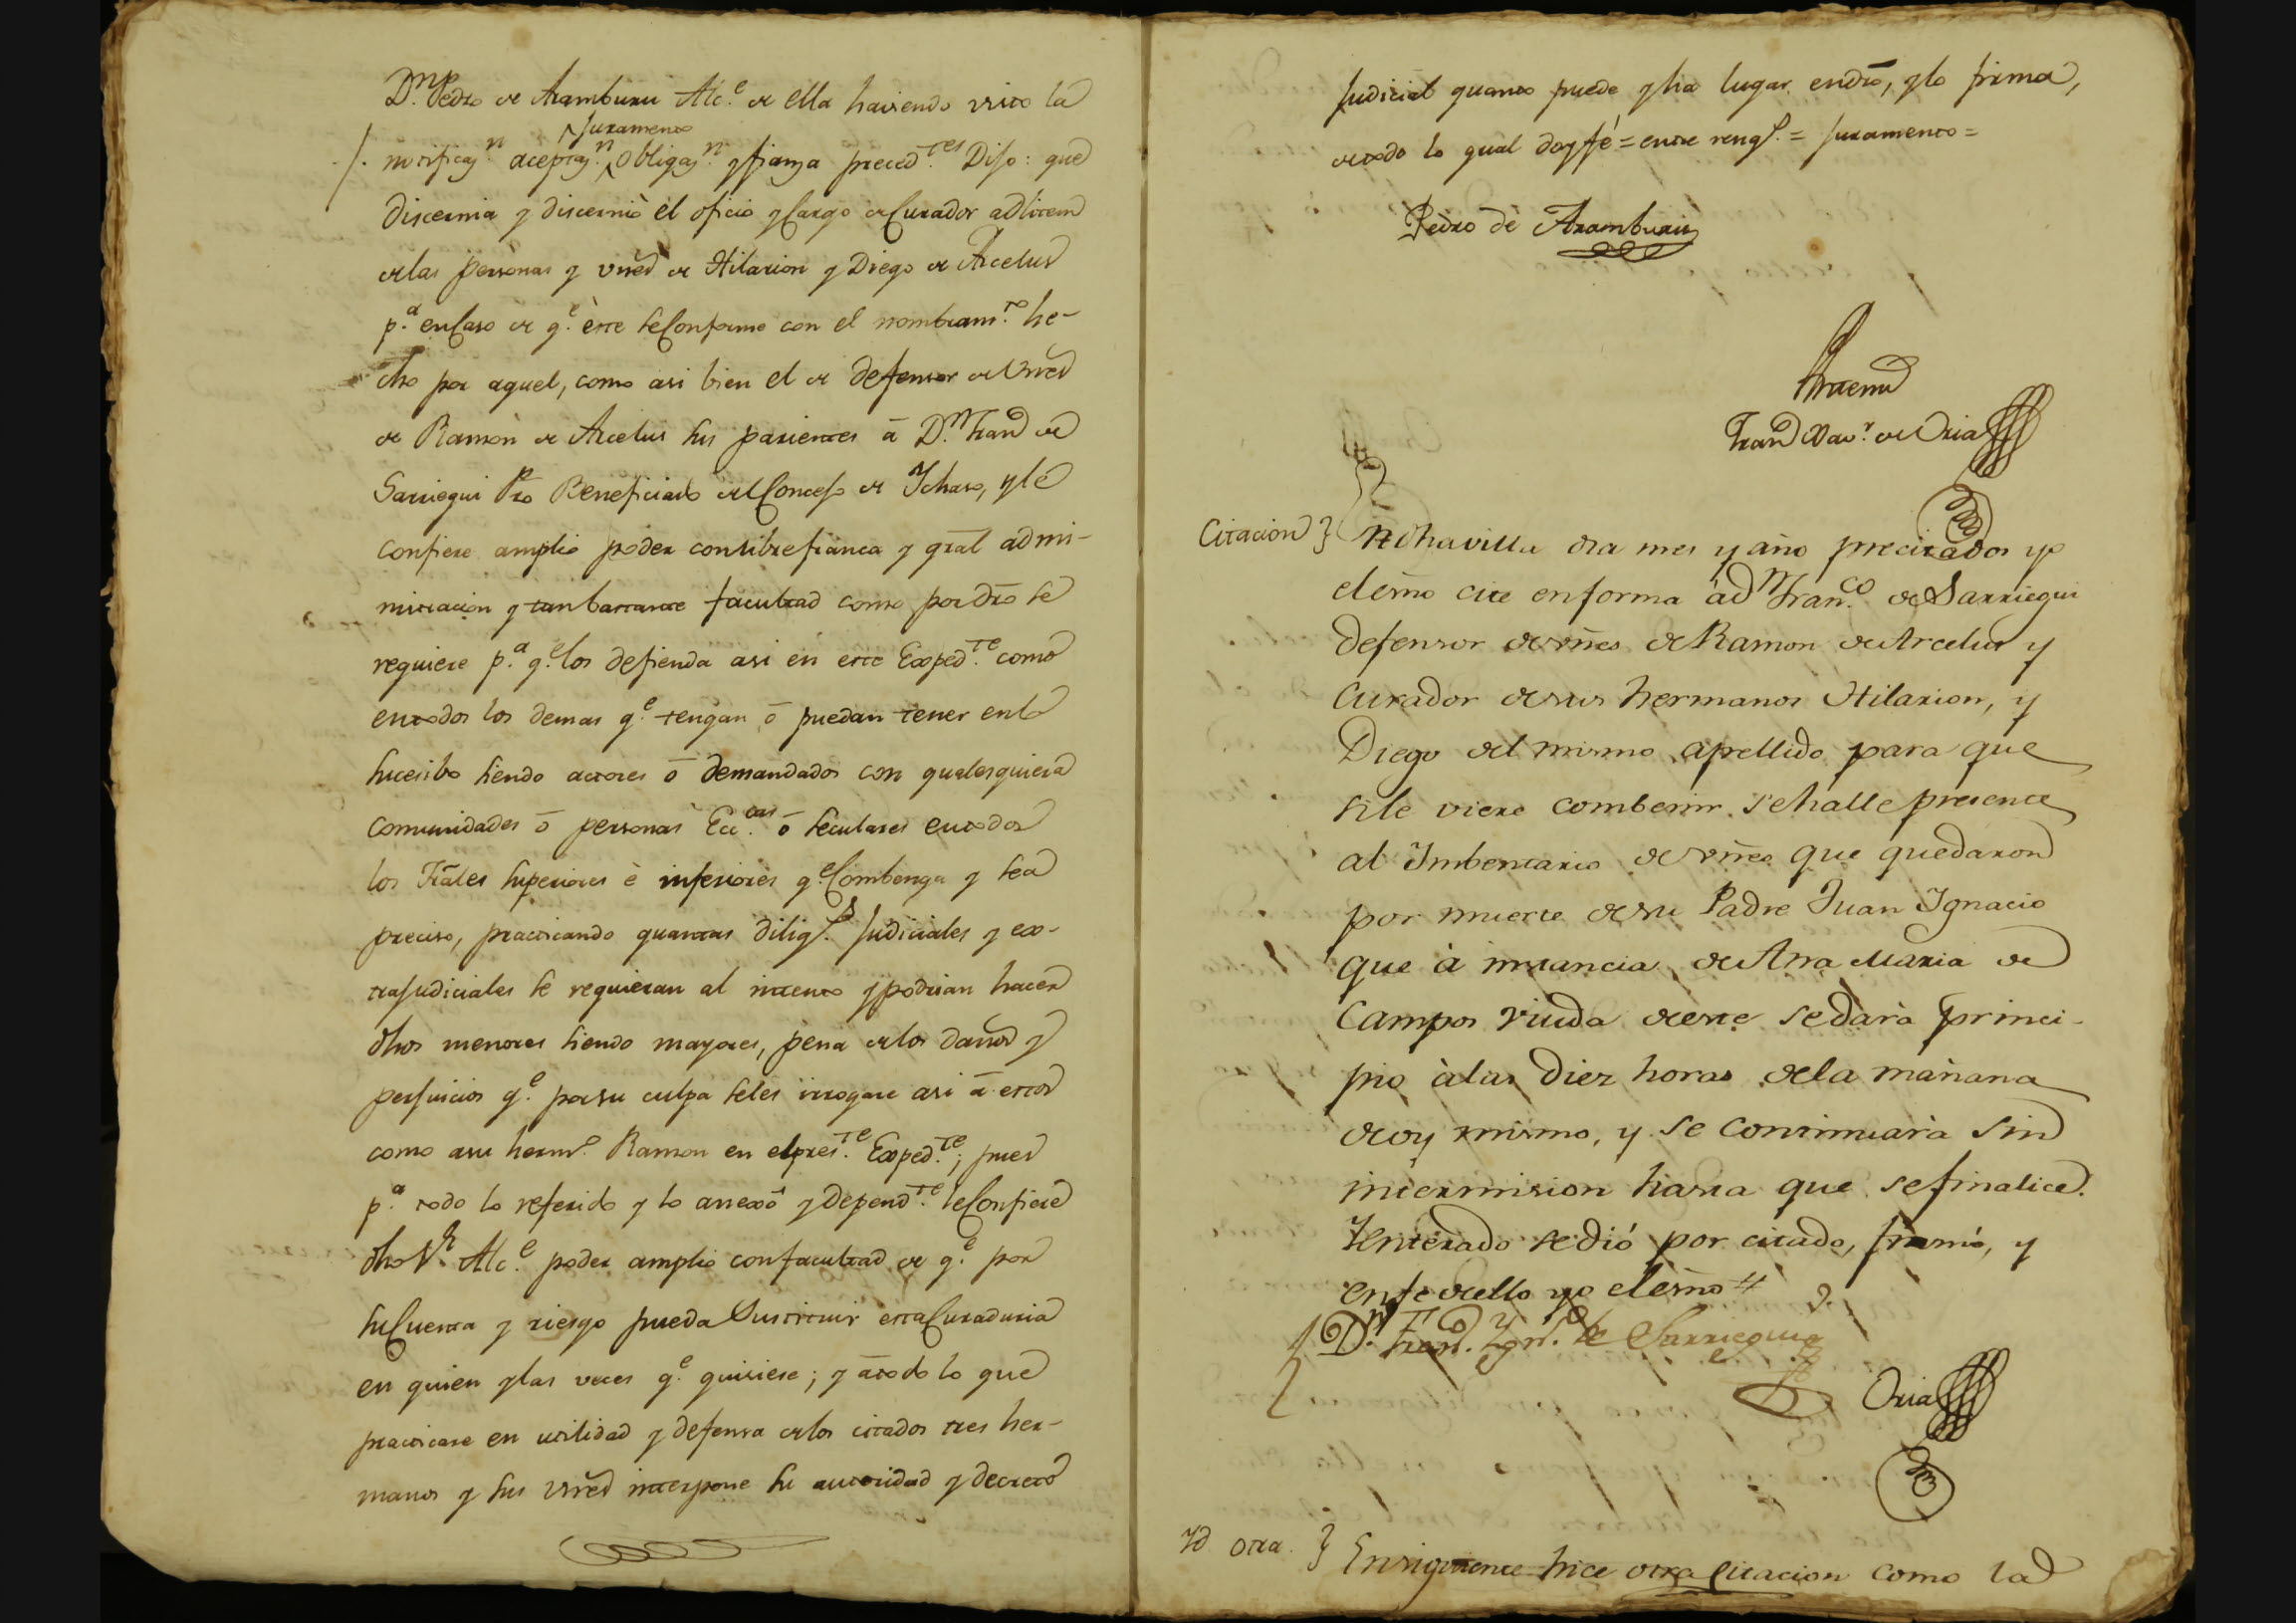 D.ⁿ Pedro de Aramburu Alc.ᵉ de ella haviendo visto la
/. notificaz.ⁿ aceptaz.ⁿ ^Juramento Obligaz.ⁿ y fianza preced.ᵗᵉˢ Dijo: que
discernia y discernió el oficio y Cargo de Curador adlitem
delas personas y vnēs de Hilarion y Diego de Arcelus
p.ᵃ en Caso de q.ᵉ èste se Conforme con el nombram.ᵗᵒ he-
cho por aquel, como asi bien el de defensor de Vnēs
de Ramòn de Arcelus sus parientes ā D.ⁿ Fran.ᶜᵒ de
Sarriegui Pro Beneficiado del Concejo de Ychaso, y le
confiere amplio poder con libre franca y gral admi-
nistracion y tan bastante facultad como por dro se
requiere p.ᵃ q.ᵉ los defienda asi en este Exped.ᵗᵉ como
en todos los demas q.ᵉ tengan ō puedan tener en lo
sucesibo siendo actores ō demandados con qualesquiera
comunidades ō personas Ecc.ᶜᵃˢ ō seculares en todos
los Trāles superiores è inferiores q.ᵉ Combenga y sea
preciso, practicando quantas dilig.ˢ Judiciales y ex-
trajudiciales se requieran al intento y podrian hacer
dhos menores siendo mayores, pena de los daños y
perjuicios q.ᵉ por su culpa seles irrogare asi ā estos
como asu herm.º Ramon en el pres.ᵗᵉ Exped.ᵗᵉ; pues
p.ᵃ todo lo referido y lo anexō y depend.ᵗᵉ le Confiere
dho S.ʳ Alc.ᵉ poder amplio con facultad de q.ᵉ por
su Cuenta y riesgo pueda Sustituir esta Curaduria
en quien y las veces q.ᵉ quisiere; y ā todo lo que
practicare en utilidad y defensa de los citados tres her-
manos y sus Vnēs interpone su autoridad y decreto
Judicial quanto puede y ha lugar en dro, y lo firma,
de todo lo qual doy fé = entre rengl.ˢ = Juramento =
Pedro de Aramburu
Antemi
Fran.ᶜᵒ Xav.ʳ de Oria
Citacion } En dha villa dia mes y año precitados yo
el esno cite en forma à d.ⁿ Fran.ᶜᵒ de Sarriegui
defensor de vñes de Ramon de Arcelus y
Curador de sus hermanos Hilarion, y
Diego del mismo apellido para que
si le viere combenir se halle presente
al Imbentario de vñes que quedaron
por muerte de su Padre Juan Ignacio
que à instancia de Ana Maria de
Campos viuda de este se dará princi-
pio à las diez horas de la mañana
de oy mismo, y se continuará sin
intermision hasta que se finalice.
Y enterado se dió por citado, firmó, y
en fe de ello yo el esno #
D.ⁿ Fran.ᶜᵒ Ygn.º de Sarriegui
Oria
Yd otra. } Enseguiente hice otra Citacion como la